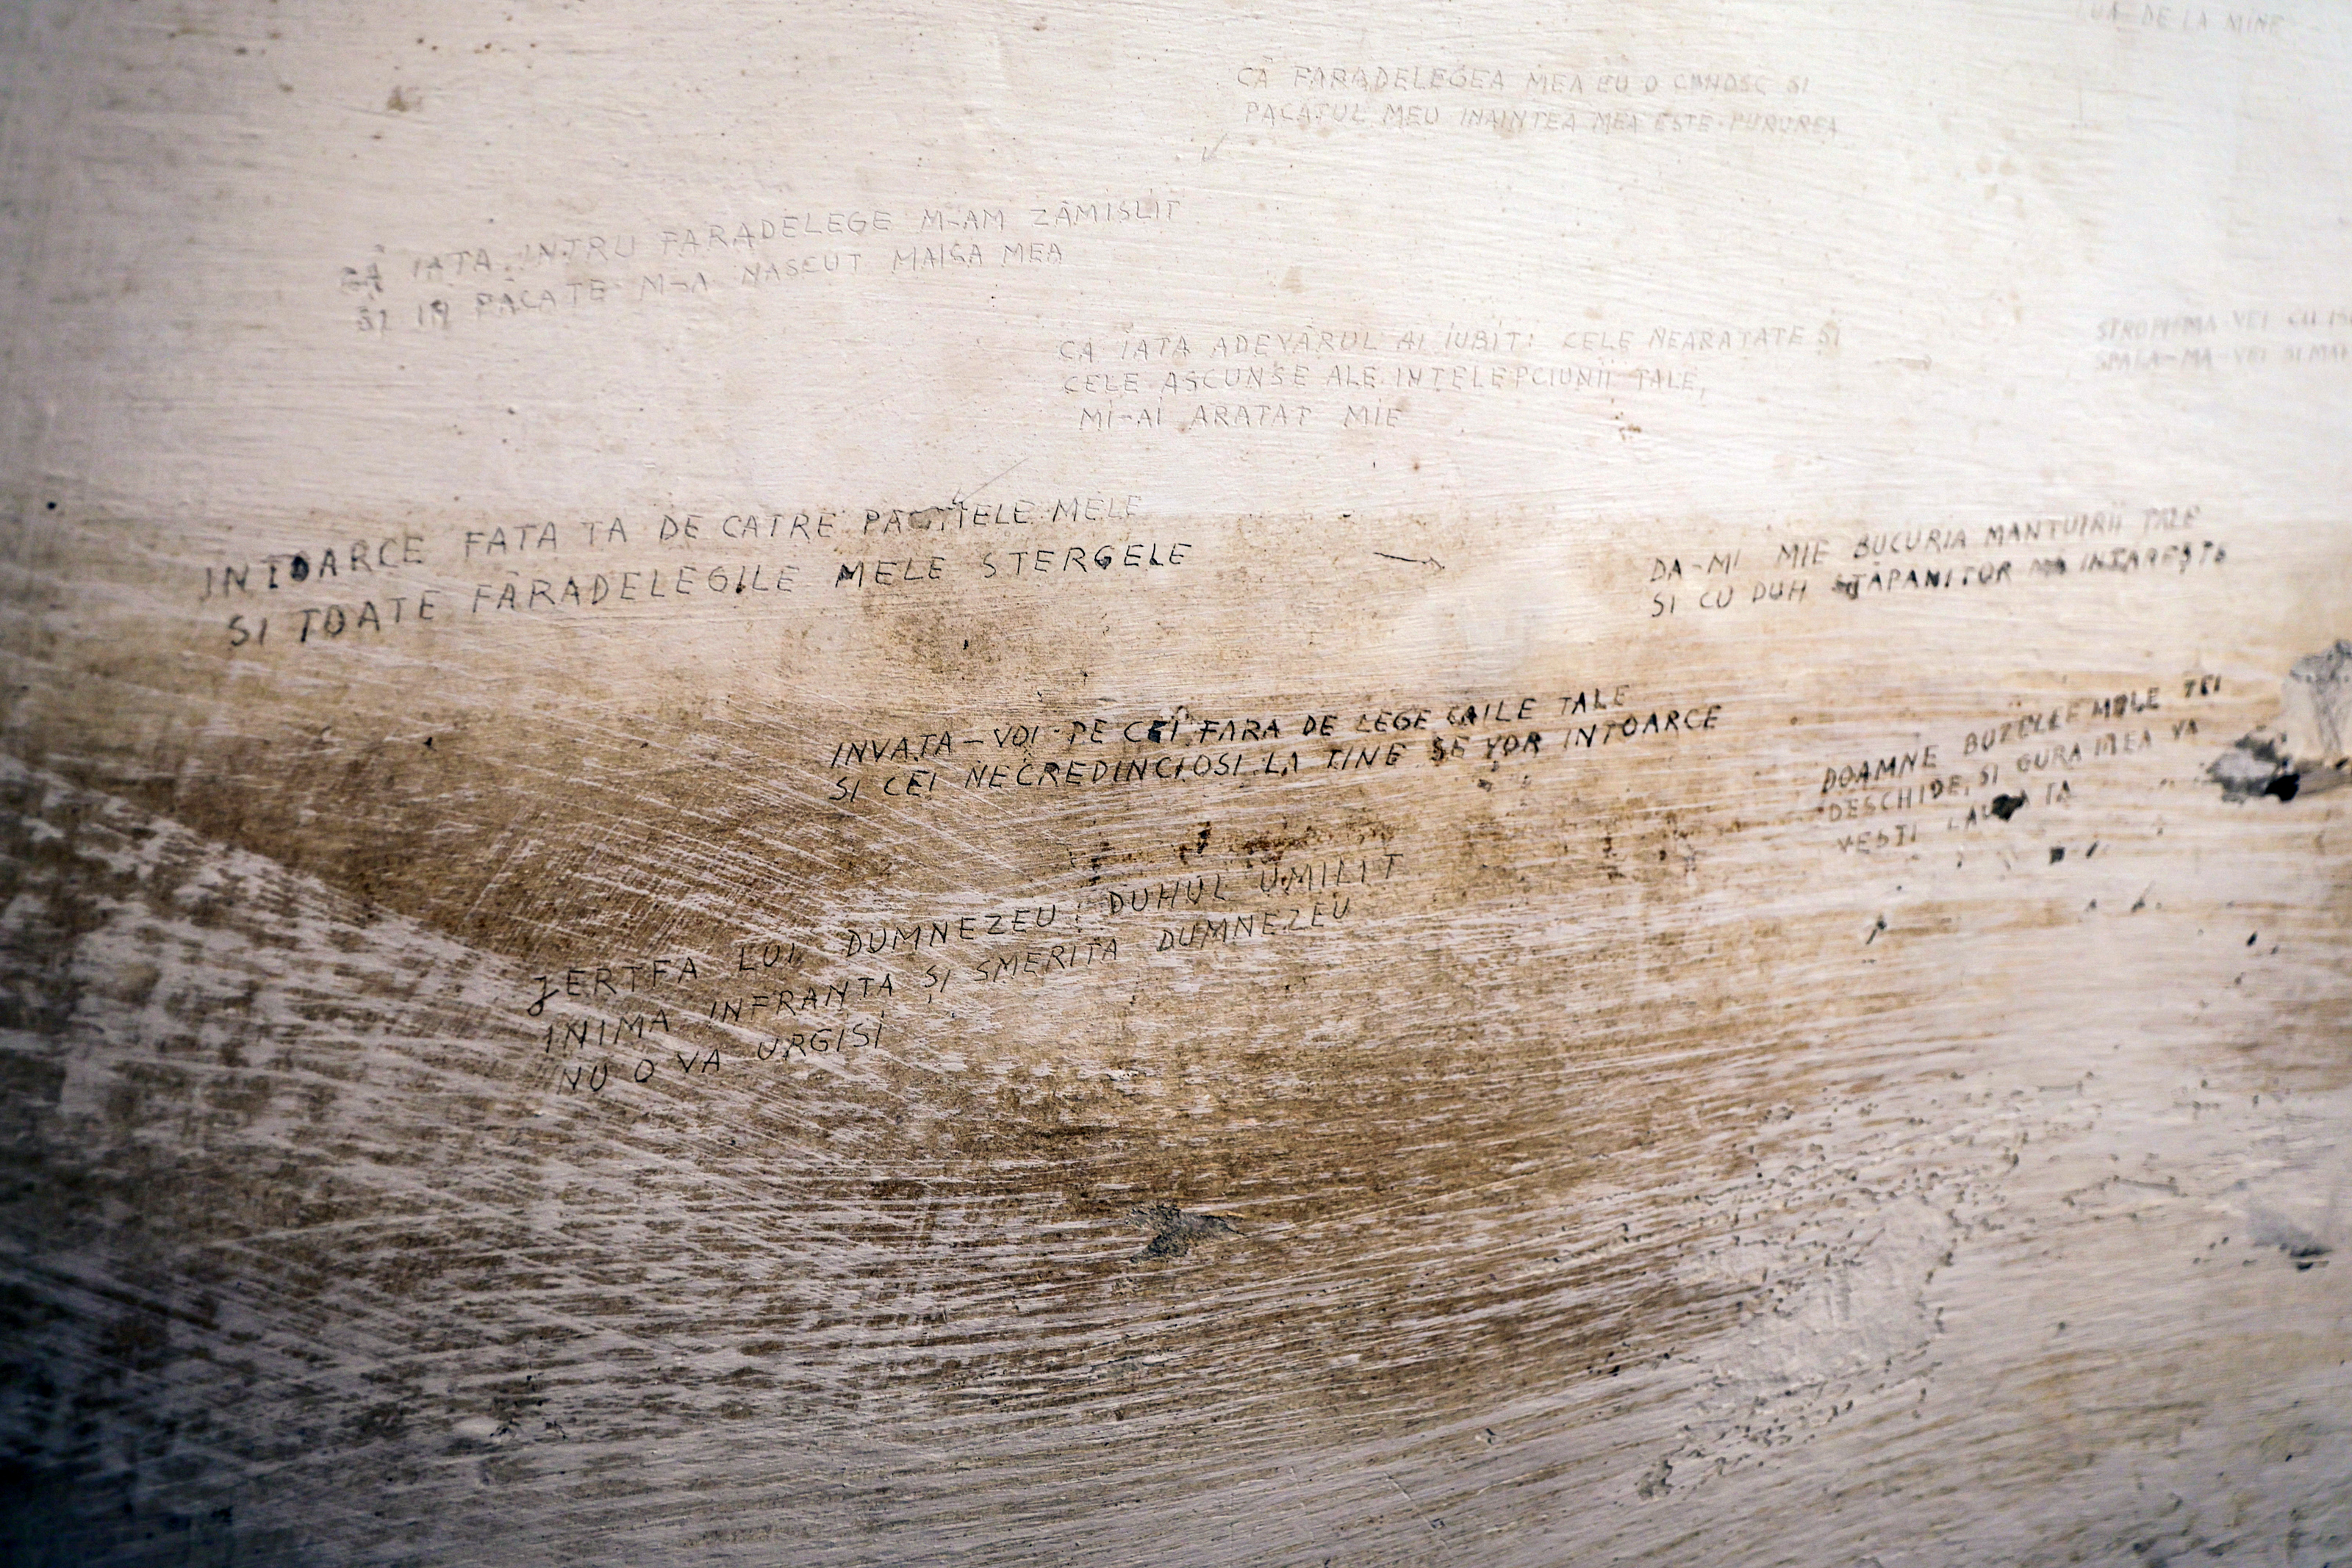 LUA DE LA MINE
CĂ FARADELEGEA MEA EU O CUNOSC SI
PACATUL MEU INAINTEA MEA ESTE PURUREA
CĂ IATA INTRU FARADELEGE M-AM ZĂMISLIT
SI IN PĂCATE M-A NASCUT MAICA MEA
CA IATA ADEVĂRUL AI IUBIT: CELE NEARATATE SI
CELE ASCUNSE ALE INTELEPCIUNII TALE,
MI-AI ARATAT MIE
STROPI-MA-VEI CU
SPALA-MA-VEI SI MAI
INTOARCE FATA TA DE CATRE MELE
SI TOATE FĂRADELEGILE MELE STERGELE
DA-MI MIE BUCURIA MANTUIRII TALE
SI CU DUH STĂPANITOR MĂ INTAREȘTE
INVATA-VOI PE CEI FARA DE LEGE CAILE TALE
SI CEI NECREDINCIOSI LA TINE SE VOR INTOARCE
DOAMNE BUZELE MELE
DESCHIDE, SI GURA MEA VA
VESTI LAUDA TA
JERTFA LUI DUMNEZEU: DUHUL UMILIT
INIMA INFRANTA ȘI SMERITA DUMNEZEU
NU O VA URGISI